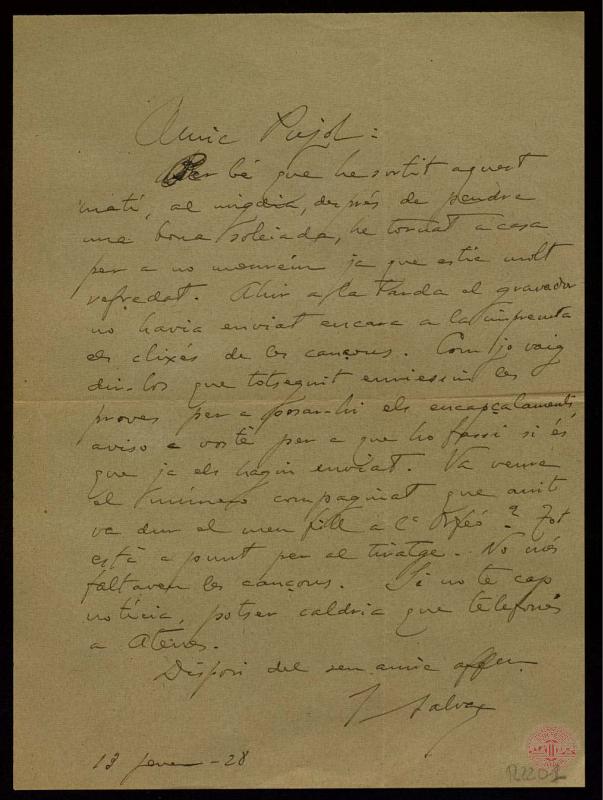 Amic Pujol:
Per bé que he sortit aquest
matí, al migdia, després de pendre
una bona soleiada, he tornat a casa
per a no moure'm ja que estic molt
refredat. Ahir a la tarda el gravador
no havia enviat encara a la impremta
els clixés de les cançons. Com jo vaig
dir-los que totseguit enviessin les
proves per a posar-hi els encapçalaments,
aviso a vostè per a que ho fassi si és
que ja els hagin enviat. Va veure
el número compaginat que anit
va dur el meu fill a l'Orfeó? Tot
està a punt per al tiratge. No més
faltaven les cançons. Si no te cap
notícia, potser caldria que telefonés
a Atenes.
Dispori del seu amic affm.
J Salvat
13 janer - 28